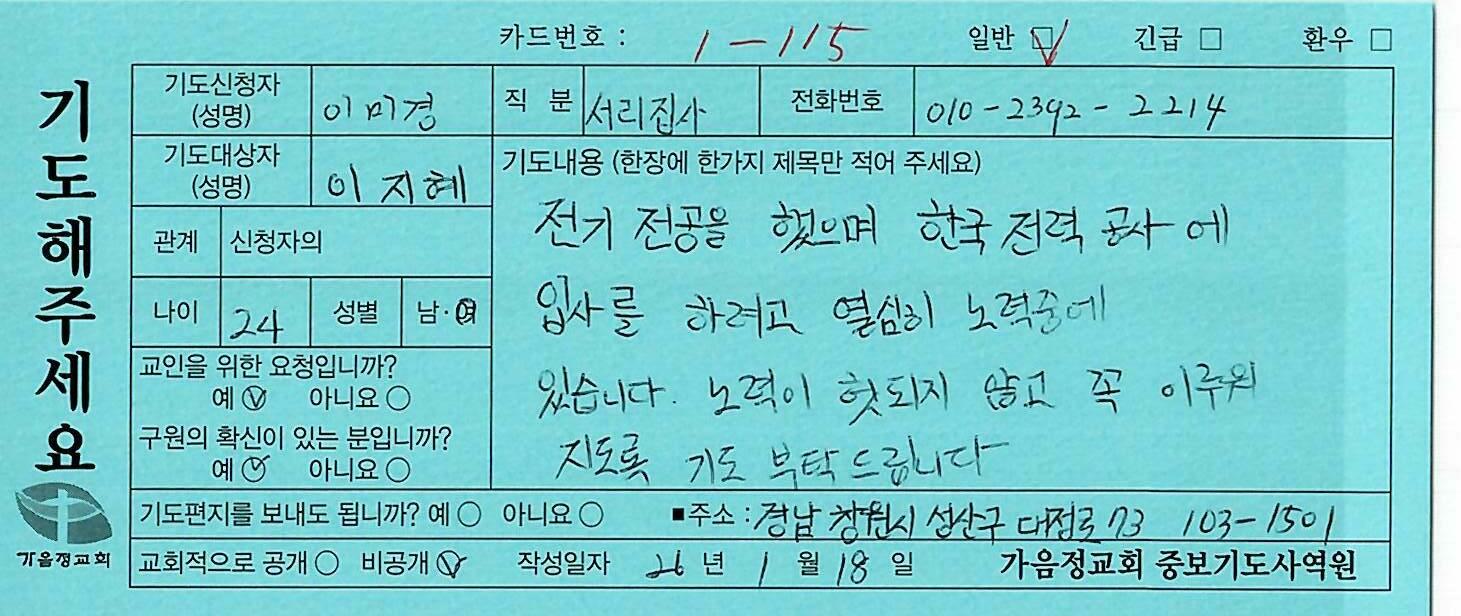 카드번호 : 1-115 일반 ☑ 긴급 □ 환우 □
기도해주세요
기도신청자 (성명) 이미경 직 분 서리집사 전화번호 010-2392-2214
기도대상자 (성명) 이지혜
관계 신청자의
나이 24 성별 남·여
교인을 위한 요청입니까?
예 ☑ 아니요 ○
구원의 확신이 있는 분입니까?
예 ☑ 아니요 ○
기도내용 (한장에 한가지 제목만 적어 주세요)
전기 전공을 했으며 한국전력 공사에
입사를 하려고 열심히 노력중에
있습니다. 노력이 헛되지 않고 꼭 이루워
지도록 기도 부탁드립니다
기도편지를 보내도 됩니까? 예 ○ 아니요 ○ ■주소 : 경남 창원시 성산구 대정로 73 103-1501
교회적으로 공개 ○ 비공개 ☑ 작성일자 26 년 1 월 18 일 가음정교회 중보기도사역원
가음정교회